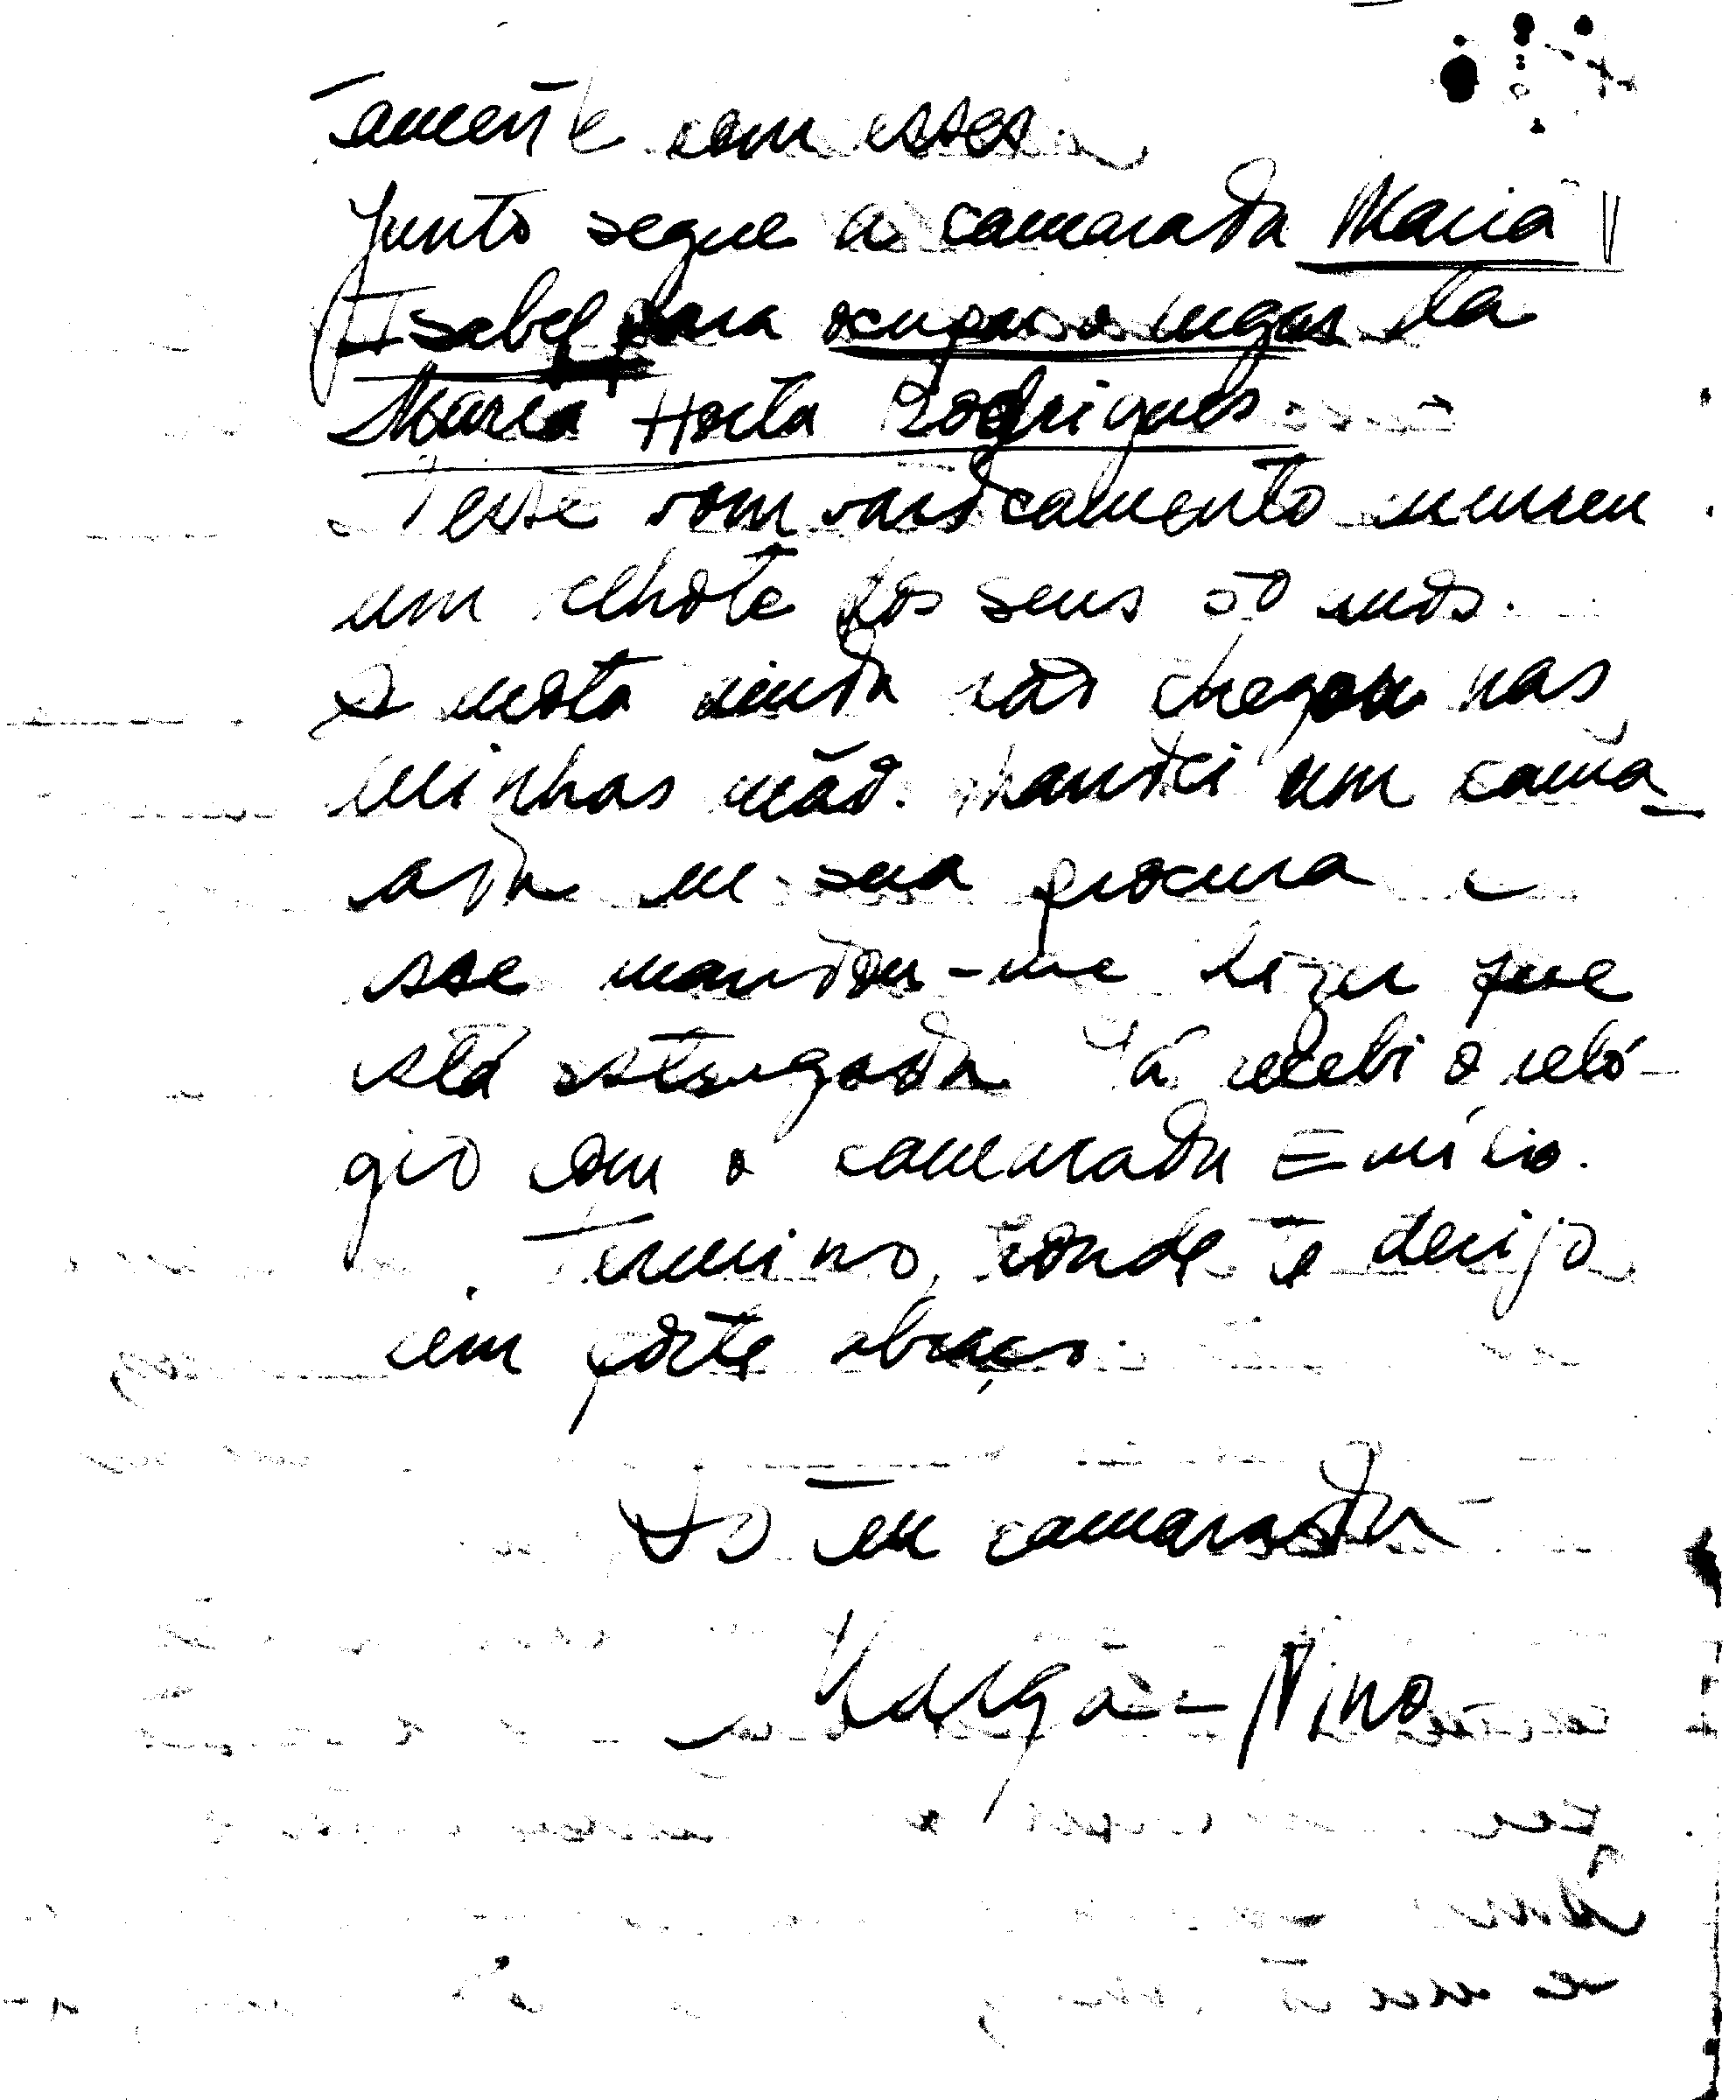 tamente com esses.
Junto segue a camarada Maria
Isabel para ocupar o lugar da
Maria Horta Rodrigues.
Neste bombardeamento morreu
um velhote dos seus 50 anos.
A mota ainda não chegou nas
minhas mão. Mandei um cama-
rada em sua procura e
esse mandou-me dizer que
está estragada. Já recebi o reló-
gio com o camarada Emílio.
Termino, donde te derijo
um forte abraço.
Do teu camarada
Nino